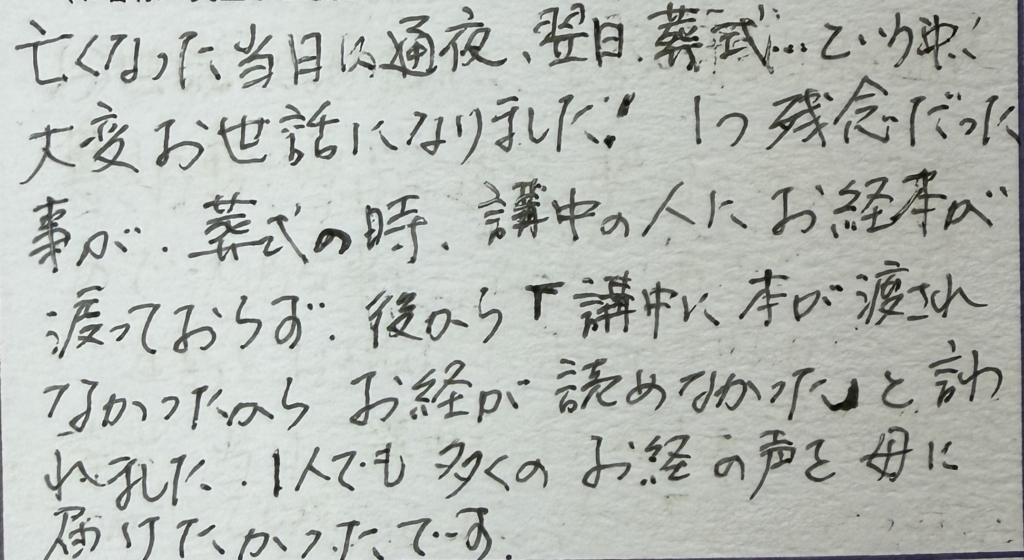 亡くなった当日は通夜、翌日、葬式…という中、
大変お世話になりました! 1つ残念だった
事が、葬式の時、講中の人にお経本が
渡っておらず、後から「講中に本が渡され
なかったからお経が読めなかった」と言わ
れました。1人でも多くのお経の声を母に
届けたかったです。